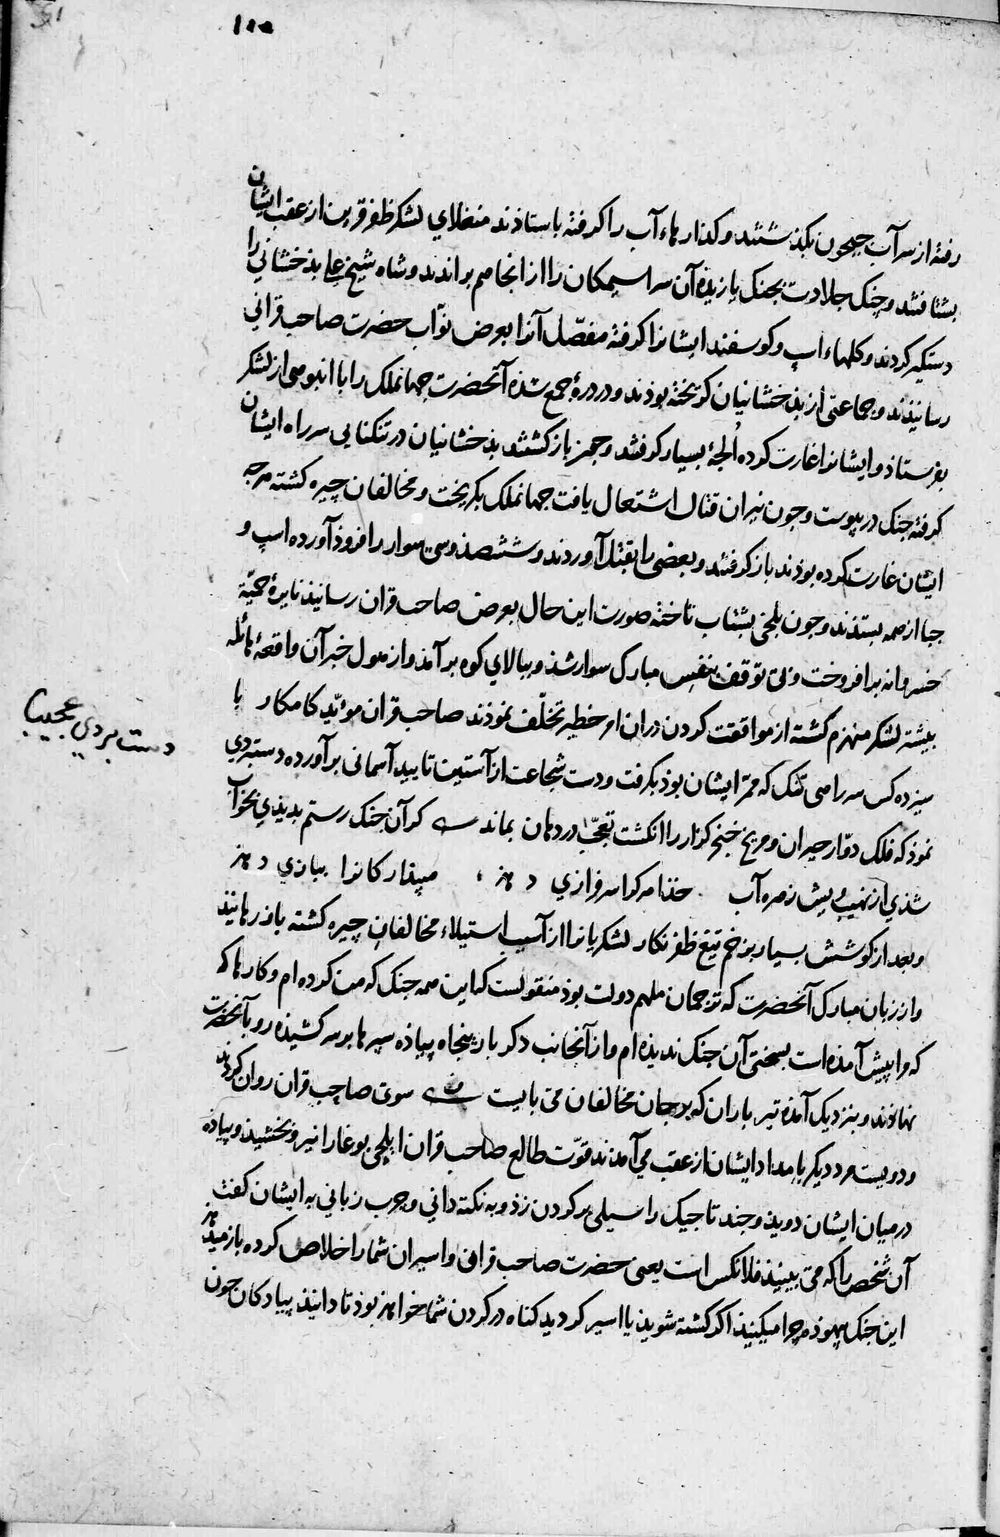 ١٠٥
رفته از سر آب جیحون بکذشتند و کذارهاء آب را کرفته باستاذند منغلای لشکر ظفر قرین از عقب ایشان
بشتافتند و جنک جلادت بجنک یازیده آن سراسیمکان را از انجا هم براندند و شاه شیخ علی بذخشانی را
دستکیر کردند و کلهاء اسپ و کوسفند ایشانرا کرفته مفصّل آنرا بعرض نوّاب حضرت صاحب قرانی
رسانیذند و جماعتی از بذخشانیان کریخته بوذند و در درۀ جمع شذه آنحضرت جهانملک را با انبوهی از لشکر
بفرستاذ و ایشانرا غارت کرده اُلجۀ بسیار کرفتند و جمز بازکشتند بذخشانیان در تنکنایی سر راه ایشان
کرفته جنک در پیوست و جون نیران قتال اشتعال یافت جهانملک بکریخت و مخالفان چیره کشته هرجه
ایشان غارت کرده بوذند باز کرفتند و بعضی را بقتل آوردند و ششصذ و سی سوار را فروذ آورده اسپ و
جبا از همه بستدند و جون بلجی بشتاب تاخته صورت این حال بعرض صاحب قران رسانیذ نایرۀ حمیّة
خسروانه برافروخت و بی توقف بنفس مبارک سوار شذ و ببالای کوه برآمذ و از هول خبر آن واقعۀ هائله
بیشتر لشکر منهزم کشته از موافقت کردن در ان امر خطیر تخلّف نموذند صاحب قران مؤیّد کامکار با
سیزده کس سر راهی تنک که ممرّ ایشان بوذ بکرفت و دست شجاعت از آستین تایید آسمانی برآورده دستبردی
نموذ که فلک دوّار حیران و مریخ خنجر کزار را انکشت تعجّب در دهان بماند کر آن جنک رستم بدیذی بخواب
شذی از نهیب نبیش زهره آب خذا هر کرا سرفرازی دهذ سپهدار کانرا ببازی دهذ
و بعد از کوشش بسیار بزخم تیغ ظفر نکار لشکریانرا از آسیب استیلاء مخالفان چیره کشته باز رهانیذ
و از زبان مبارک آنحضرت که ترجمان ملهم دولت بوذ منقولست که این همه جنک که من کرده ام و کارها که
که مرا پیش آمذه است بسختی آن جنک ندیذه ام و از آنجانب دکر بار پنجاه پیاذه سپرها بر سر کشیذه رو بآنحضرت
نهاذند و بنزدیک آمذه تیر باران که بر جان مخالفان می بایست سوی صاحب قران روان کردند
و دویست مرد دیکر بامداد ایشان از عقب می آمدند قوّت طالع صاحب قران ایلچی بوغا را نیرو بخشیذ و پیاذه
در میان ایشان دویذ و جند تاجیک را سیلی بر کردن زذ و به نکته دانی و جرب زبانی به ایشان کفت
آن شخص را که می بینیذ فلانکس است یعنی حضرت صاحب قرانی و اسیران شما را خلاص کرده باز میدهذ
این جنک بیهوذه چرا میکنیذ اکر کشته شویذ یا اسیر کردیذ کناه در کردن شما خواهذ بوذ تا دانیذ پیاذکان جون
دست بردی عجیب